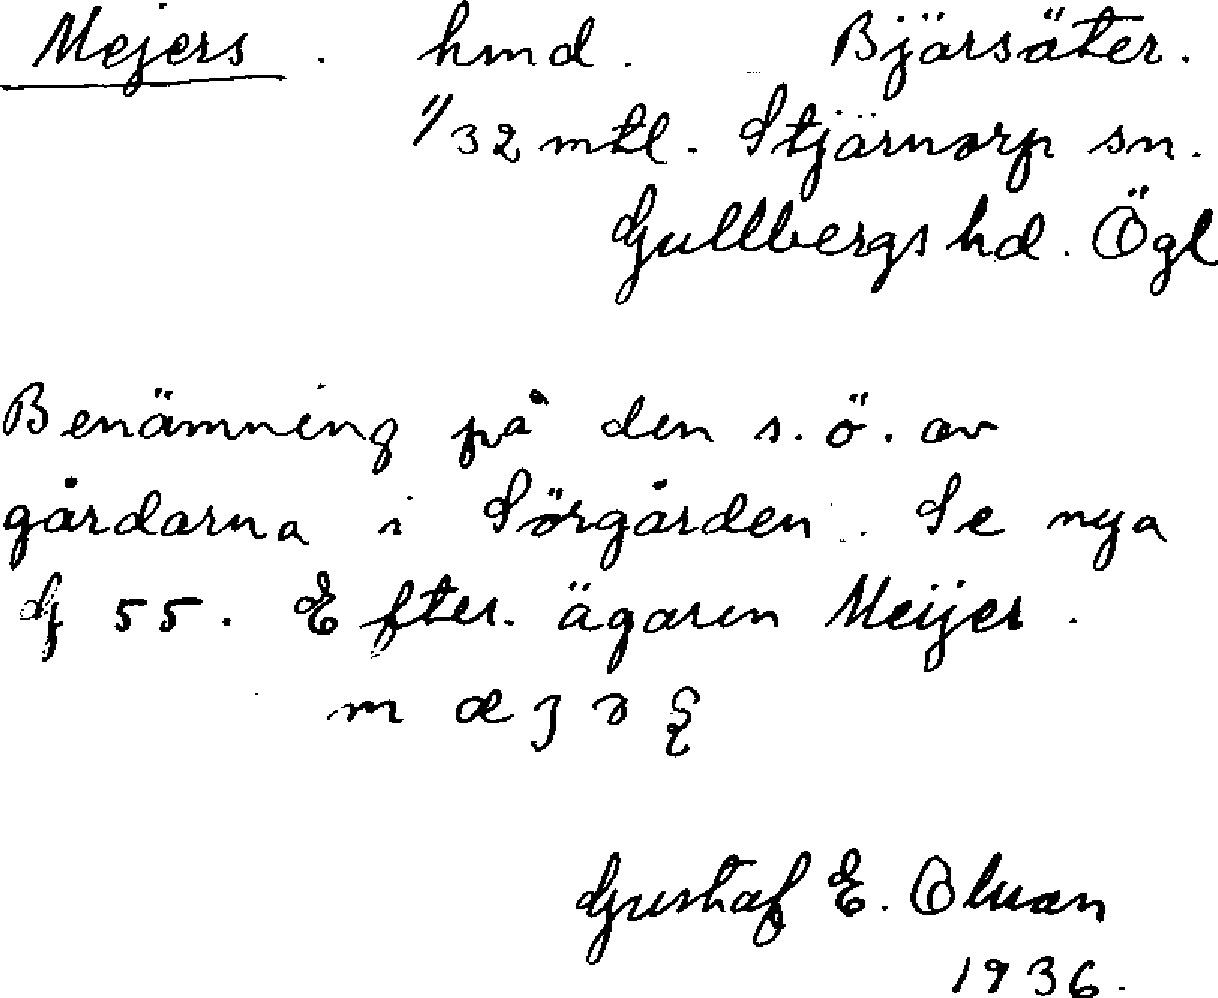 Mejers. hmd. Bjärsäter.
1/32 mtl. Stjärnorp sn.
Gullbergs hd. Ögl
Benämning på den s.ö. av
gårdarna i Sörgården. Se nya
G 55. Efter ägaren Meijer.
Gustaf E. Olson
1936.